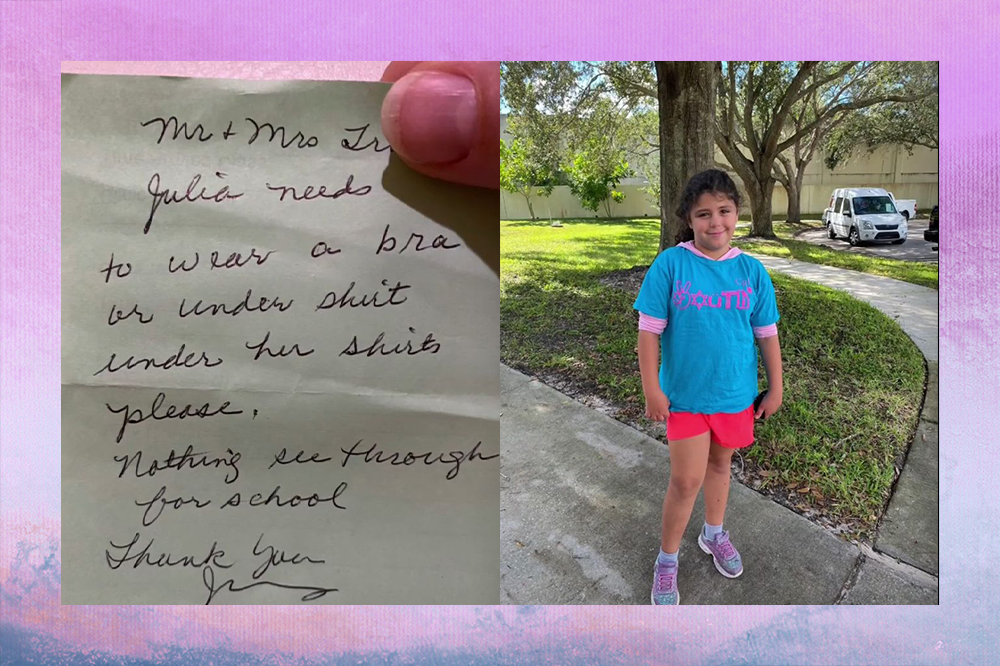 Mr + Mrs Tr
Julia needs
to wear a bra
or under shirt
under her shirts
please.
Nothing see through
for school
Thank You